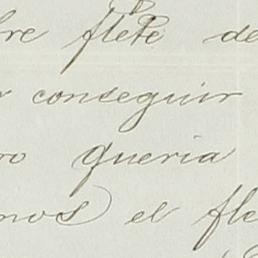 bre flete de
conseguir
ro queria
mos el fle